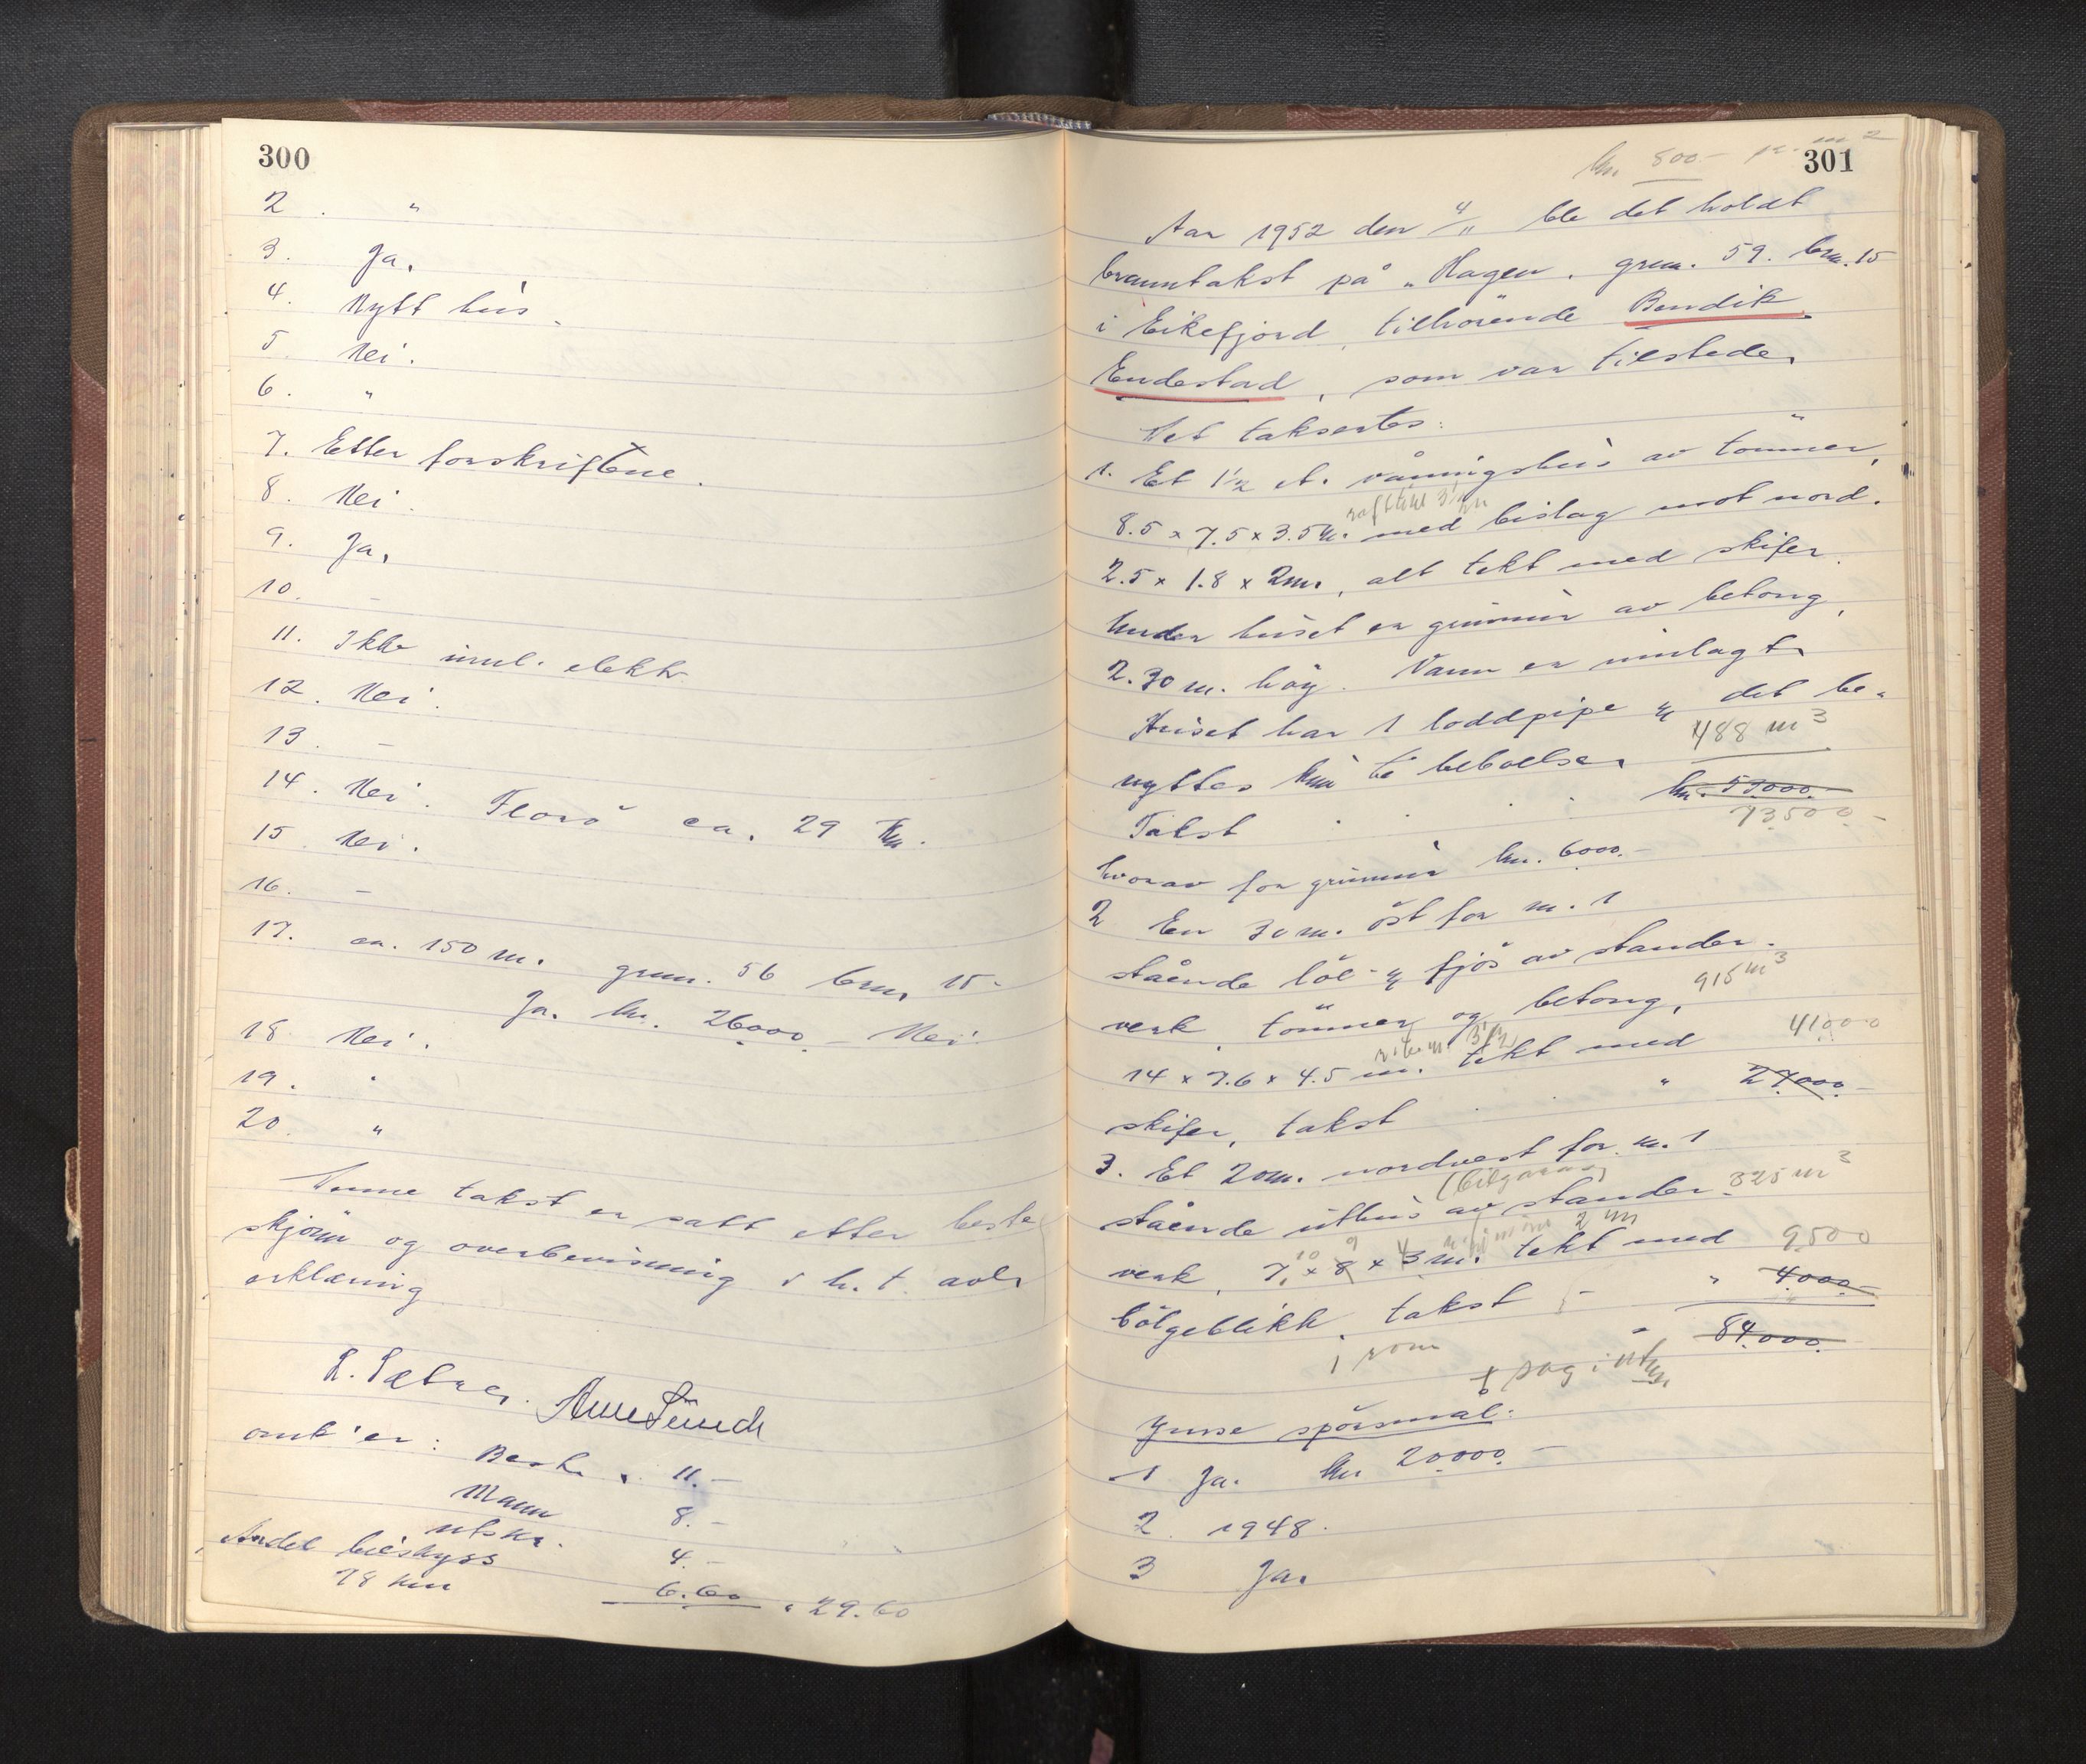 300
2. "
3. Ja.
4. Nytt hus.
5. Nei.
6. "
7. Etter forskriftene.
8. Nei.
9. Ja.
10. –
11. Ikke innl. elektr.
12. Nei.
13. –
14. Nei. Florö ca. 29 km.
15. Nei.
16. –
17. ca. 150 m. grnr. 56 brnr. 15-
Ja. kr. 26000.- Nei.
18. Nei.
19. "
20. "
Denne takst er satt etter beste
skjönn og overbevisning i h.t. avlr
erklæring
omk'er:
11.-
Mann 8.-
utskr. 4.-
Andel bilskyss
78 km 6.60 " 29.60
301
kr. 800- pr. m2
Aar 1952 den 4/11 ble det holdt
branntakst på "Hagen. grnr. 59. brnr. 15
i Eikefjord, tilhörende Bendik
Endestad, som var tilstede.
Det taksertes:
1. Et 1½ et. våningshus av tömmer,
8.5 x 7.5 x 3.5m. med bislag mot nord.
2.5 x 1.8 x 2m., alt tekt med skifer.
Under huset er grunnur av betong,
2.30 m. höy. Vann er innlagt.
Huset har 1 loddpipe og det be-
488 m3
nyttes kun til beboelse.
Takst kr. 53000.-
73500.-
hvorav for grunnur kr. 6000.-
2 En 30 m. öst for nr. 1
stående löe- og fjös av stander-
verk, tömmer og betong, 915 m3
14 x 7.6 x 4.5 m. tekt med 41000
skifer, takst " 27000.-
3. Et 20m. nordvest for nr. 1
(bilgarasje)
stående uthus av stander- 325 m3
10 9 4 2 m
verk, 7. x 8 x 3 m. tekt med 9500
bölgeblikk, takst " 4000.-
" 84.000.
1 rom
+ sag i uthus
Ymse spörsmål:
1 Ja. kr 20000.-
2. 1948.
3 Ja.